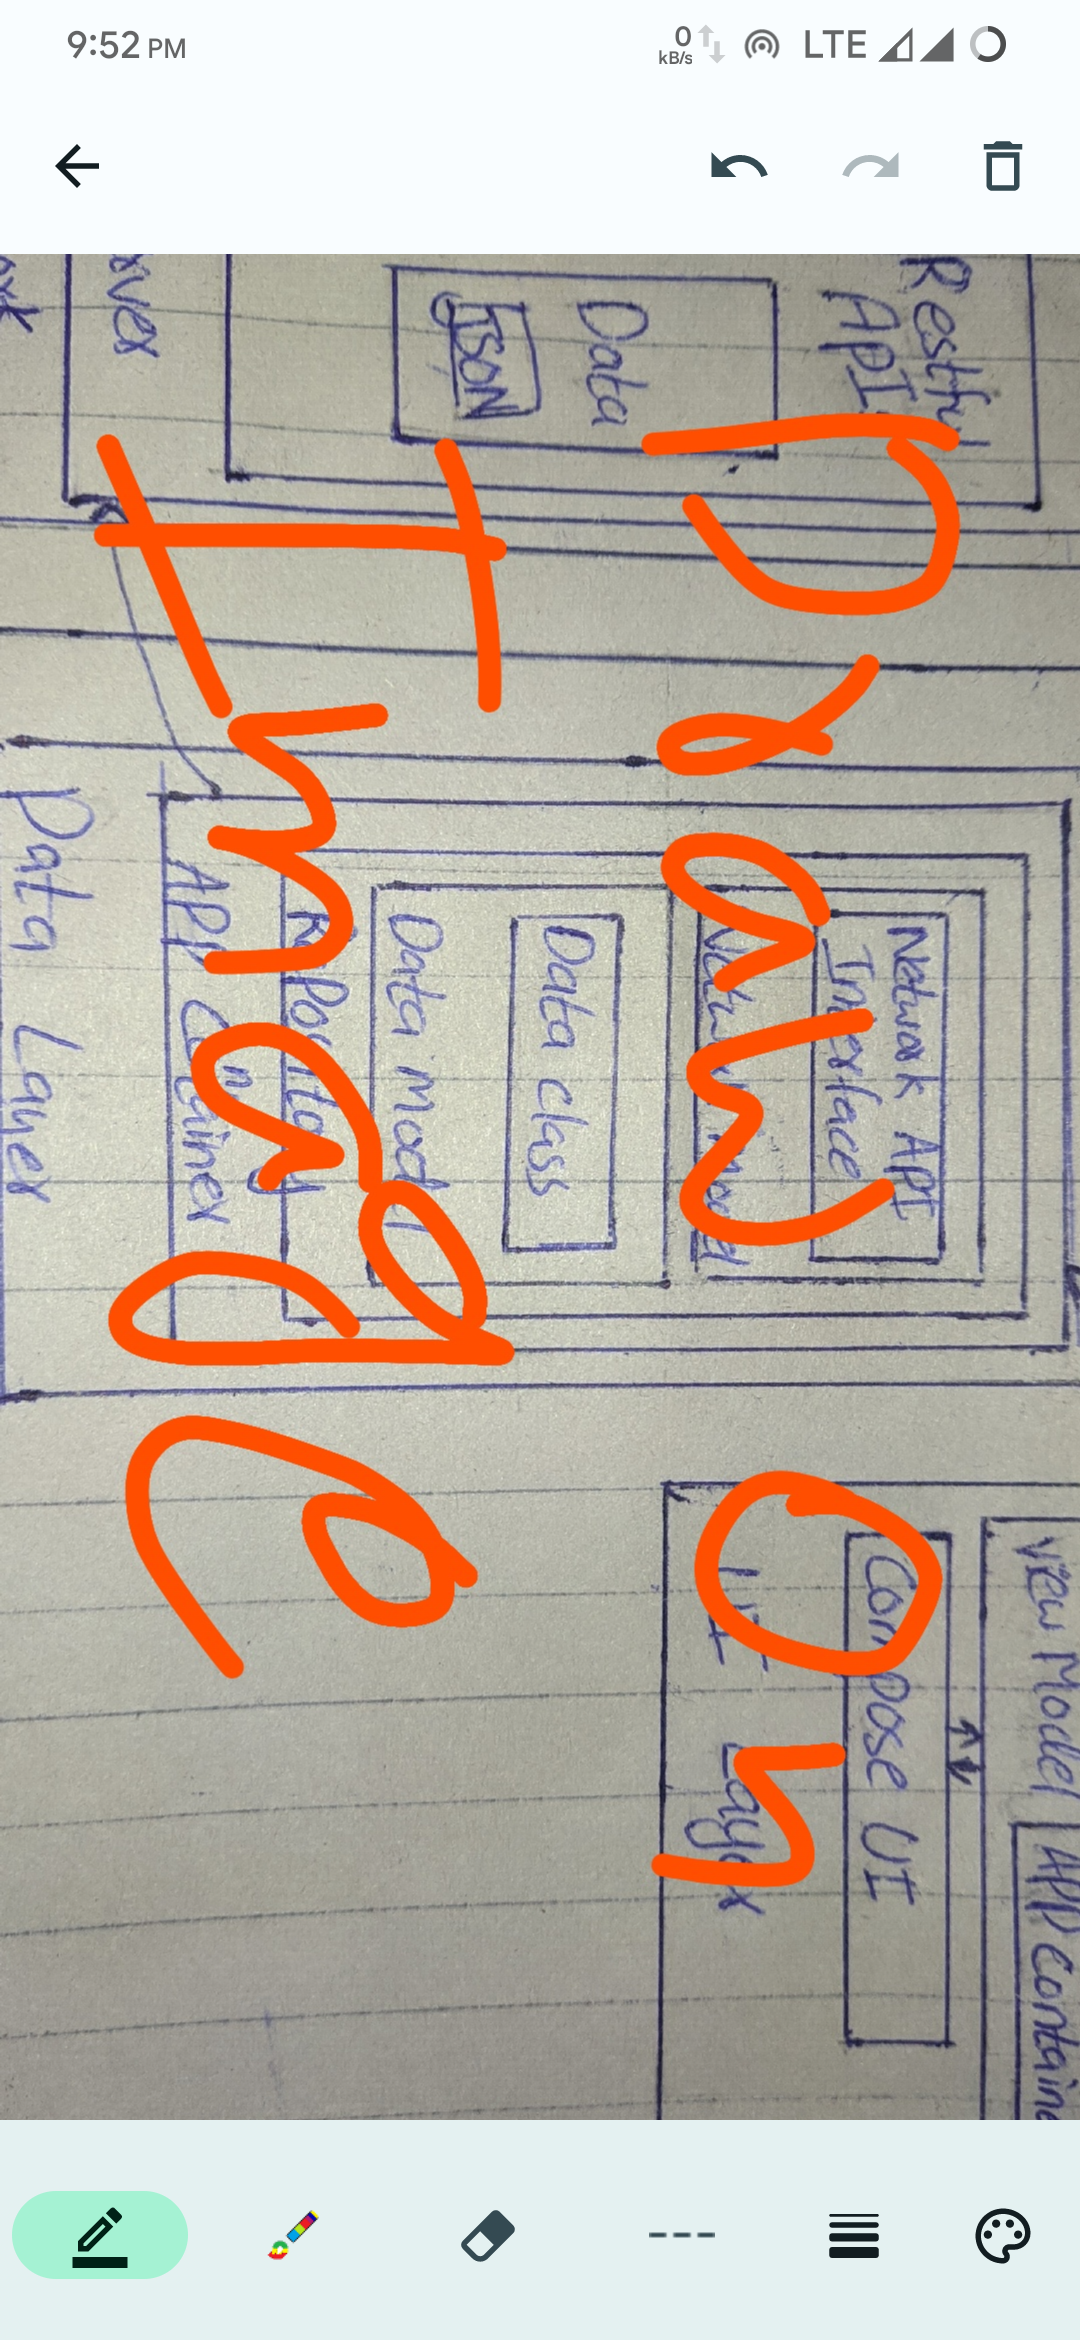 9:52 PM
0 kB/s LTE
Restful
API
Data
JSON
Draw On
Image
Network API
Interface
Data class
Data model
Repository
APP Container
Data Layer
View Model
APP Contain
Compose UI
UI Layer